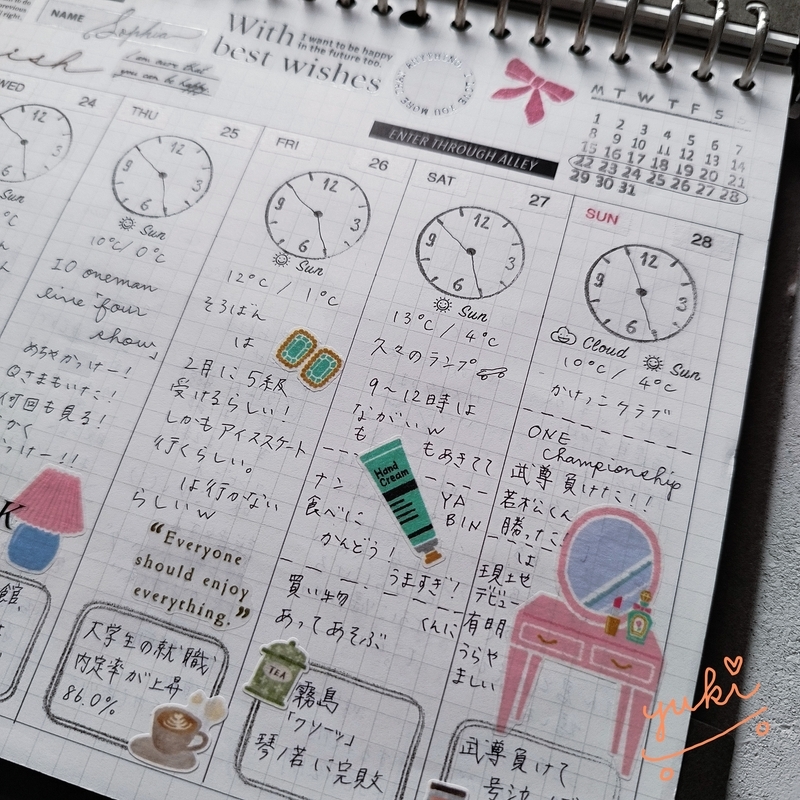 NAME Sophia
With
best wishes
I want to be happy
in the future too.
I am sure that
you can be happy
ENTER THROUGH ALLEY
M T W T F S
1 2 3 4 5 6 7
8 9 10 11 12 13 14
15 16 17 18 19 20 21
22 23 24 25 26 27 28
29 30 31
WED 24
12
3
6
Sun
THU 25
12
3
6
9
Sun
10℃/0℃
IO oneman
live「four
show」
めちゃかっけー!
Qさまもいた!
何回も見る!
大学生の就職
内定率が上昇
86.0%
FRI 26
12
3
6
9
Sun
12℃ / 1℃
そろばん
は
2月に5級
受けるらしい!
しかもアイススケート
行くらしい。
は行かない
らしいw
“Everyone
should enjoy
everything.”
TEA
霧島
「クソーッ」
琴ノ若に完敗
SAT 27
12
3
6
9
Sun
13℃/ 4℃
久々のランプ
9～12時は
ながいw
も もあきてて
Hand
Cream
ナン
食べに
かんどう!
YA
BIN
うますぎ!
買い物
あってあそぶ
くんに
SUN 28
12
3
6
9
Cloud Sun
10℃/ 4℃
かけっこクラブ
ONE
Championship
武尊負けた!!
若松くん
勝った!
は
現土也
デビュー
有明
うらや
ましい
武尊負けて
yuki